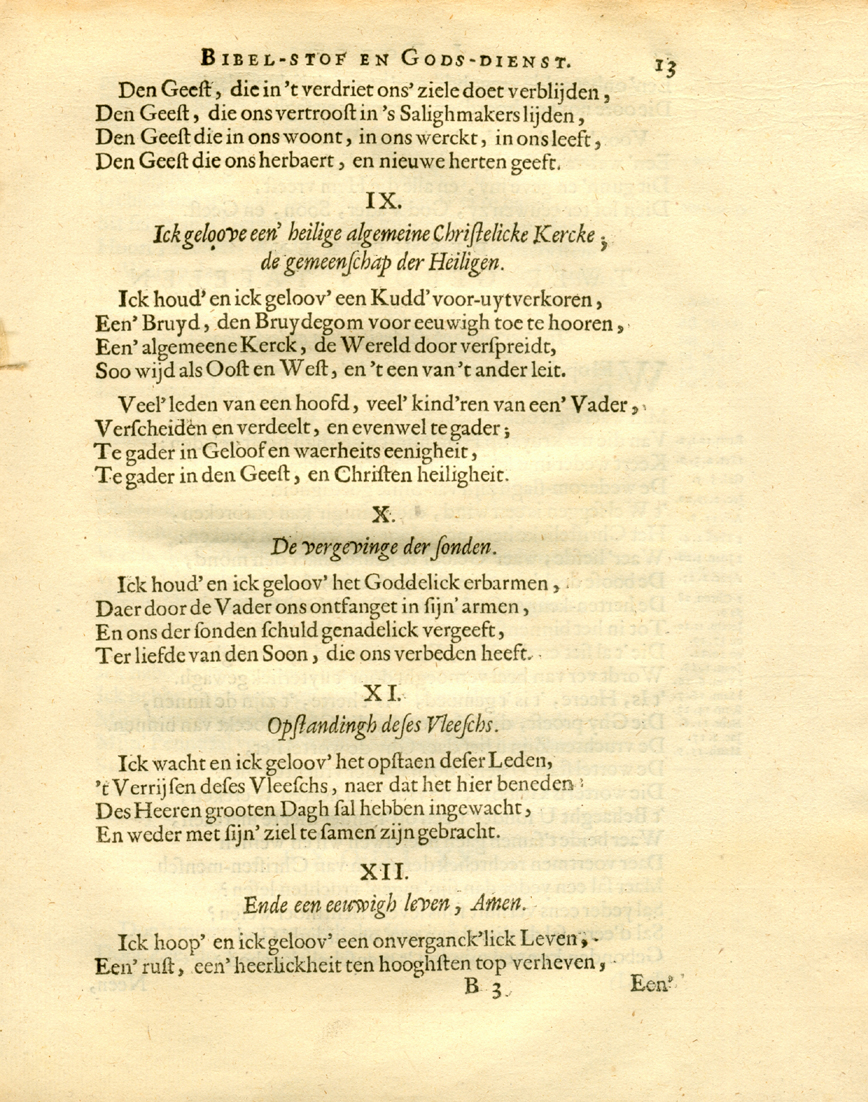 BIBEL-STOF EN GODS-DIENST. 13
Den Geeſt, die in 't verdriet ons' ziele doet verblijden,
Den Geeſt, die ons vertrooſt in 's Salighmakers lijden,
Den Geeſt die in ons woont, in ons werckt, in ons leeft,
Den Geeſt die ons herbaert, en nieuwe herten geeft.
IX.
Ick geloove een' heilige algemeine Chriſtelicke Kercke;
de gemeenſchap der Heiligen.
Ick houd' en ick geloov' een Kudd' voor-uytverkoren,
Een' Bruyd, den Bruydegom voor eeuwigh toe te hooren,
Een' algemeene Kerck, de Wereld door verſpreidt,
Soo wijd als Ooſt en Weſt, en 't een van 't ander leit.
Veel' leden van een hoofd, veel' kind'ren van een' Vader,
Verſcheiden en verdeelt, en evenwel te gader;
Te gader in Geloof en waerheits eenigheit,
Te gader in den Geeſt, en Chriſten heiligheit.
X.
De vergevinge der ſonden.
Ick houd' en ick geloov' het Goddelick erbarmen,
Daer door de Vader ons ontfanget in ſijn' armen,
En ons der ſonden ſchuld genadelick vergeeft,
Ter liefde van den Soon, die ons verbeden heeft.
XI.
Opſtandingh deſes Vleeſchs.
Ick wacht en ick geloov' het opſtaen deſer Leden,
't Verrijſen deſes Vleeſchs, naer dat het hier beneden
Des Heeren grooten Dagh ſal hebben ingewacht,
En weder met ſijn' ziel te ſamen zijn gebracht.
XII.
Ende een eeuwigh leven, Amen.
Ick hoop' en ick geloov' een onverganck'lick Leven,
Een' ruſt, een' heerlickheit ten hooghſten top verheven,
B 3 Een'